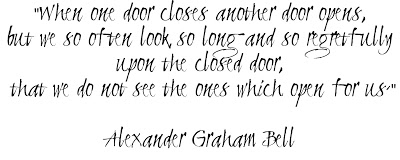 "When one door closes another door opens,
but we so often look, so long and so regretfully
upon the closed door,
that we do not see the ones which open for us"
Alexander Graham Bell